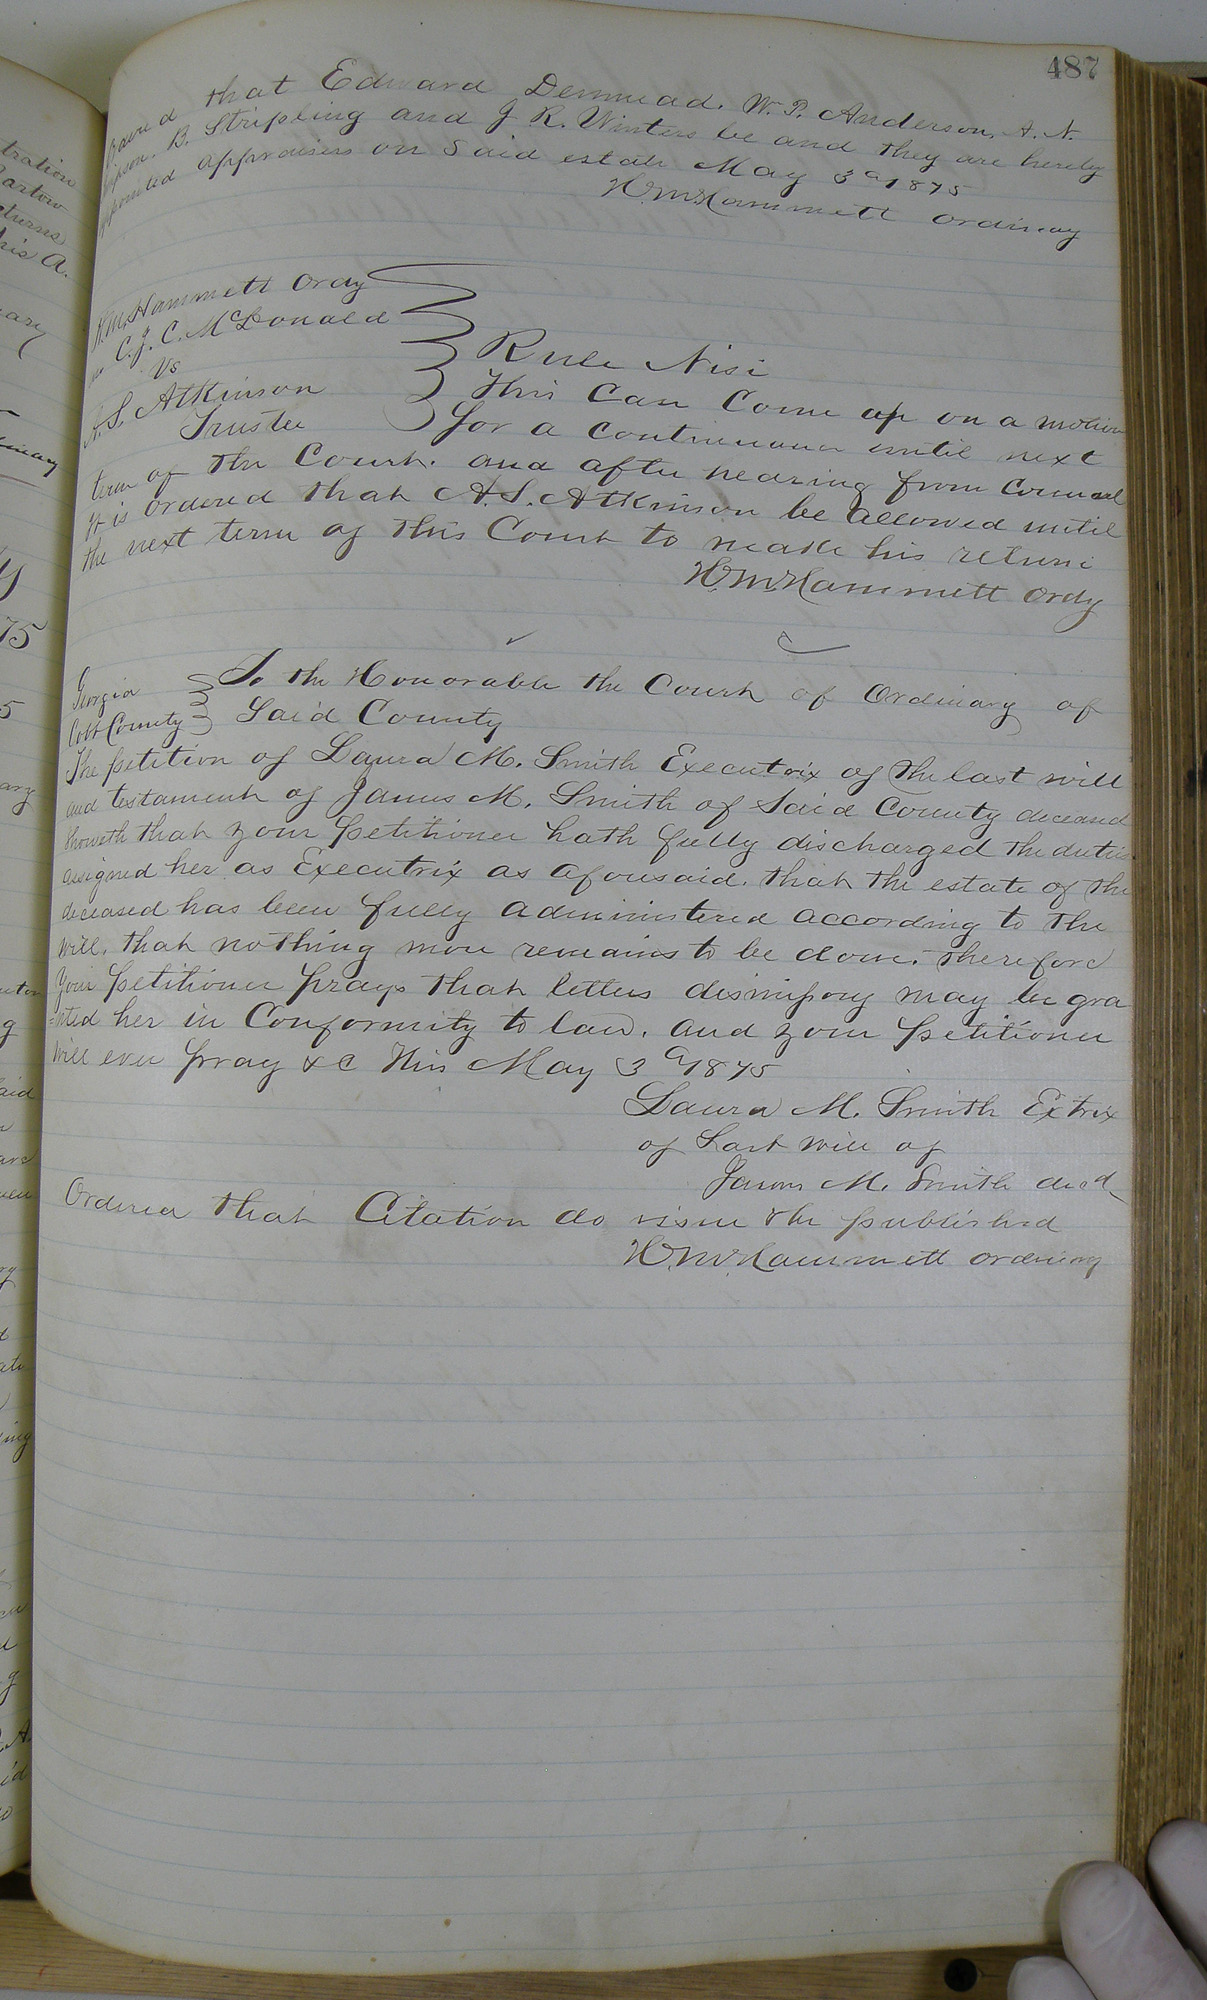 487
that Edward Denmead. W. P. Anderson, A. N.
Simpson. B. Stripling and J R. Winters be and they are hereby
appointed appraisers on said estate May 3d 1875
H. M. Hammett Ordinary
H. M. Hammett Ordy
C. J. C. McDonald
vs
A. S. Atkinson
Trustee
Rule Nisi
This Case Come up on a motion
for a continuance until next
term of the Court. and after hearing from Counsel
It is ordered that A. S. Atkinson be allowed until
the next term of this Court to make his return
H. M. Hammett Ordy
Georgia
Cobb County
To the Honorable the Court of Ordinary of
Said County
The petition of Laura M. Smith Executrix of the last will
and testament of James M. Smith of Said County deceased
showeth that your petitioner hath fully discharged the duties
assigned her as Executrix as aforesaid. that the estate of the
deceased has been fully administered according to the
will. that nothing more remains to be done. therefore
Your petitioner prays that letters dismissory may be gra
=nted her in Conformity to law. and your petitioner
will ever pray &c This May 3d 1875
Laura M. Smith Extrix
of Last will of
James M. Smith decd
Ordered that Citation do issue & be published
H. M. Hammett Ordinary